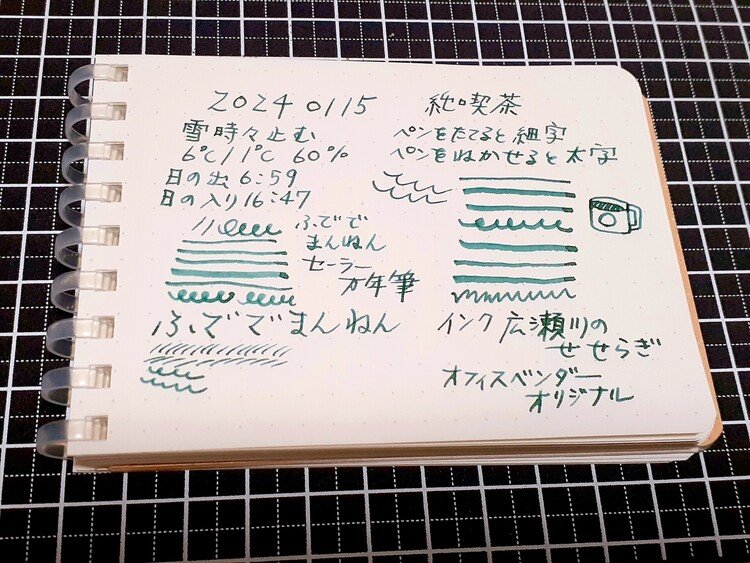 2024 0115
雪時々止む
6℃/1℃ 60%
日の出 6:59
日の入り 16:47
ふでで
まんねん
セーラー
万年筆
ふででまんねん
純喫茶
ペンをたてると細字
ペンをねかせると太字
インク 広瀬川の
せせらぎ
オフィスベンダー
オリジナル